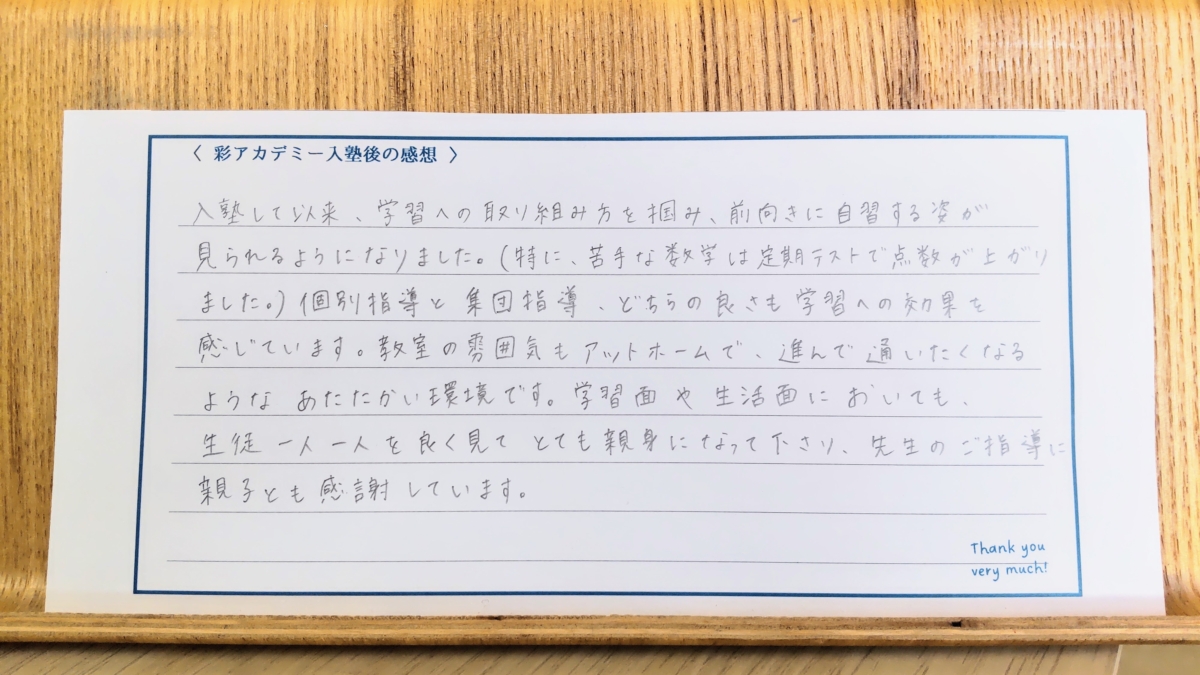 〈 彩アカデミー入塾後の感想 〉
入塾して以来、学習への取り組み方を掴み、前向きに自習する姿が
見られるようになりました。(特に、苦手な数学は定期テストで点数が上がり
ました。)個別指導と集団指導、どちらの良さも学習への効果を
感じています。教室の雰囲気もアットホームで、進んで通いたくなる
ような あたたかい環境です。学習面や生活面においても、
生徒一人一人を良く見て とても親身になって下さり、先生のご指導に
親子とも感謝しています。
Thank you
very much!